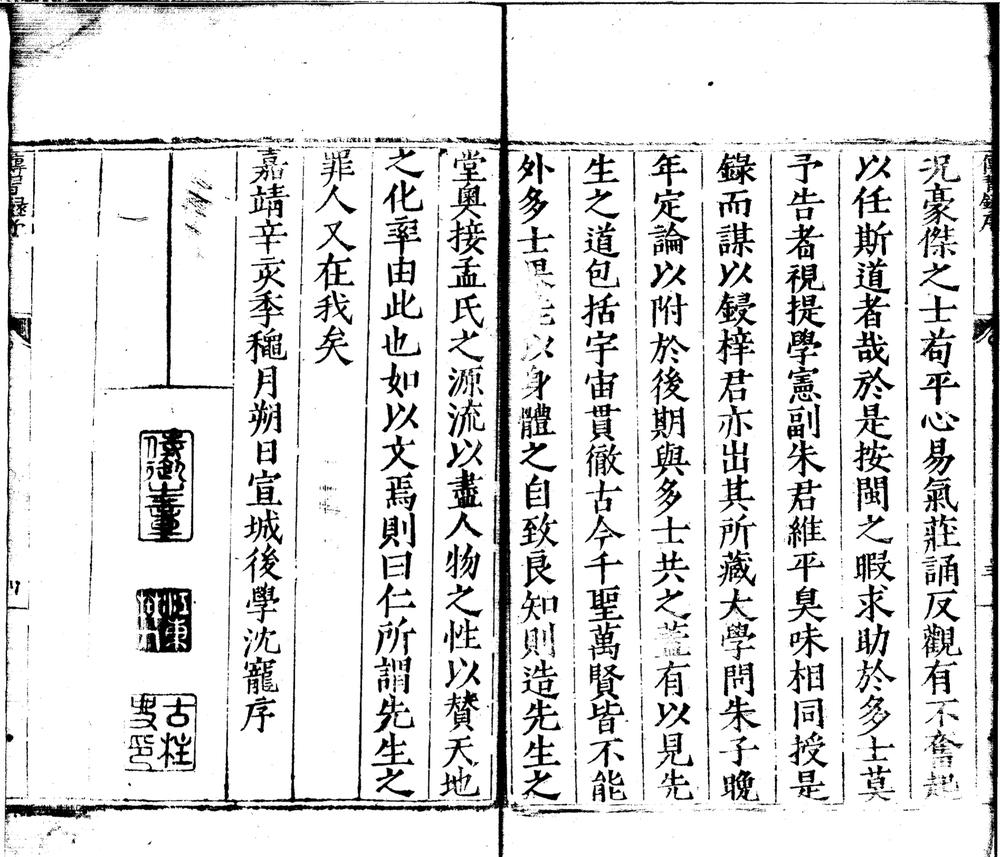 況豪傑之士苟平心易氣莊誦反觀有不奮起
以任斯道者哉於是按閩之暇求助於多士莫
予告者視提學憲副朱君維平臭味相同授是
錄而謀以鋟梓君亦出其所藏大學問朱子晚
年定論以附於後期與多士共之蓋有以見先
生之道包括宇宙貫徹古今千聖萬賢皆不能
外多士果能以身體之自致良知則造先生之
堂奧接孟氏之源流以盡人物之性以贊天地
之化率由此也如以文焉則曰仁所謂先生之
罪人又在我矣
嘉靖辛亥季穐月朔日宣城後學沈寵序
古林